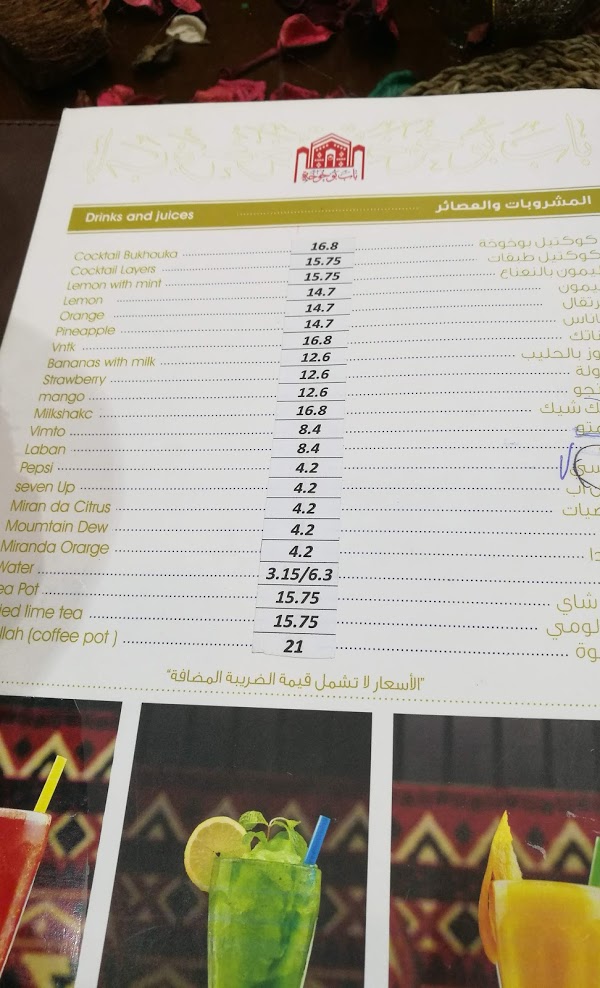 باب بو خوخة
Drinks and juices المشروبات والعصائر
Cocktail Bukhouka 16.8 كوكتيل بوخوخة
Cocktail Layers 15.75 كوكتيل طبقات
Lemon with mint 15.75 ليمون بالنعناع
Lemon 14.7 ليمون
Orange 14.7
Pineapple 14.7
Vntk 16.8
Bananas with milk 12.6 بالحليب
Strawberry 12.6
mango 12.6
Milkshakc 16.8 شيك
Vimto 8.4
Laban 8.4
Pepsi 4.2
seven Up 4.2 اب
Miran da Citrus 4.2
Moumtain Dew 4.2
Miranda Orarge 4.2
Water 3.15/6.3
ea Pot 15.75 شاي
ied lime tea 15.75 لومي
llah (coffee pot ) 21
"الأسعار لا تشمل قيمة الضريبة المضافة"